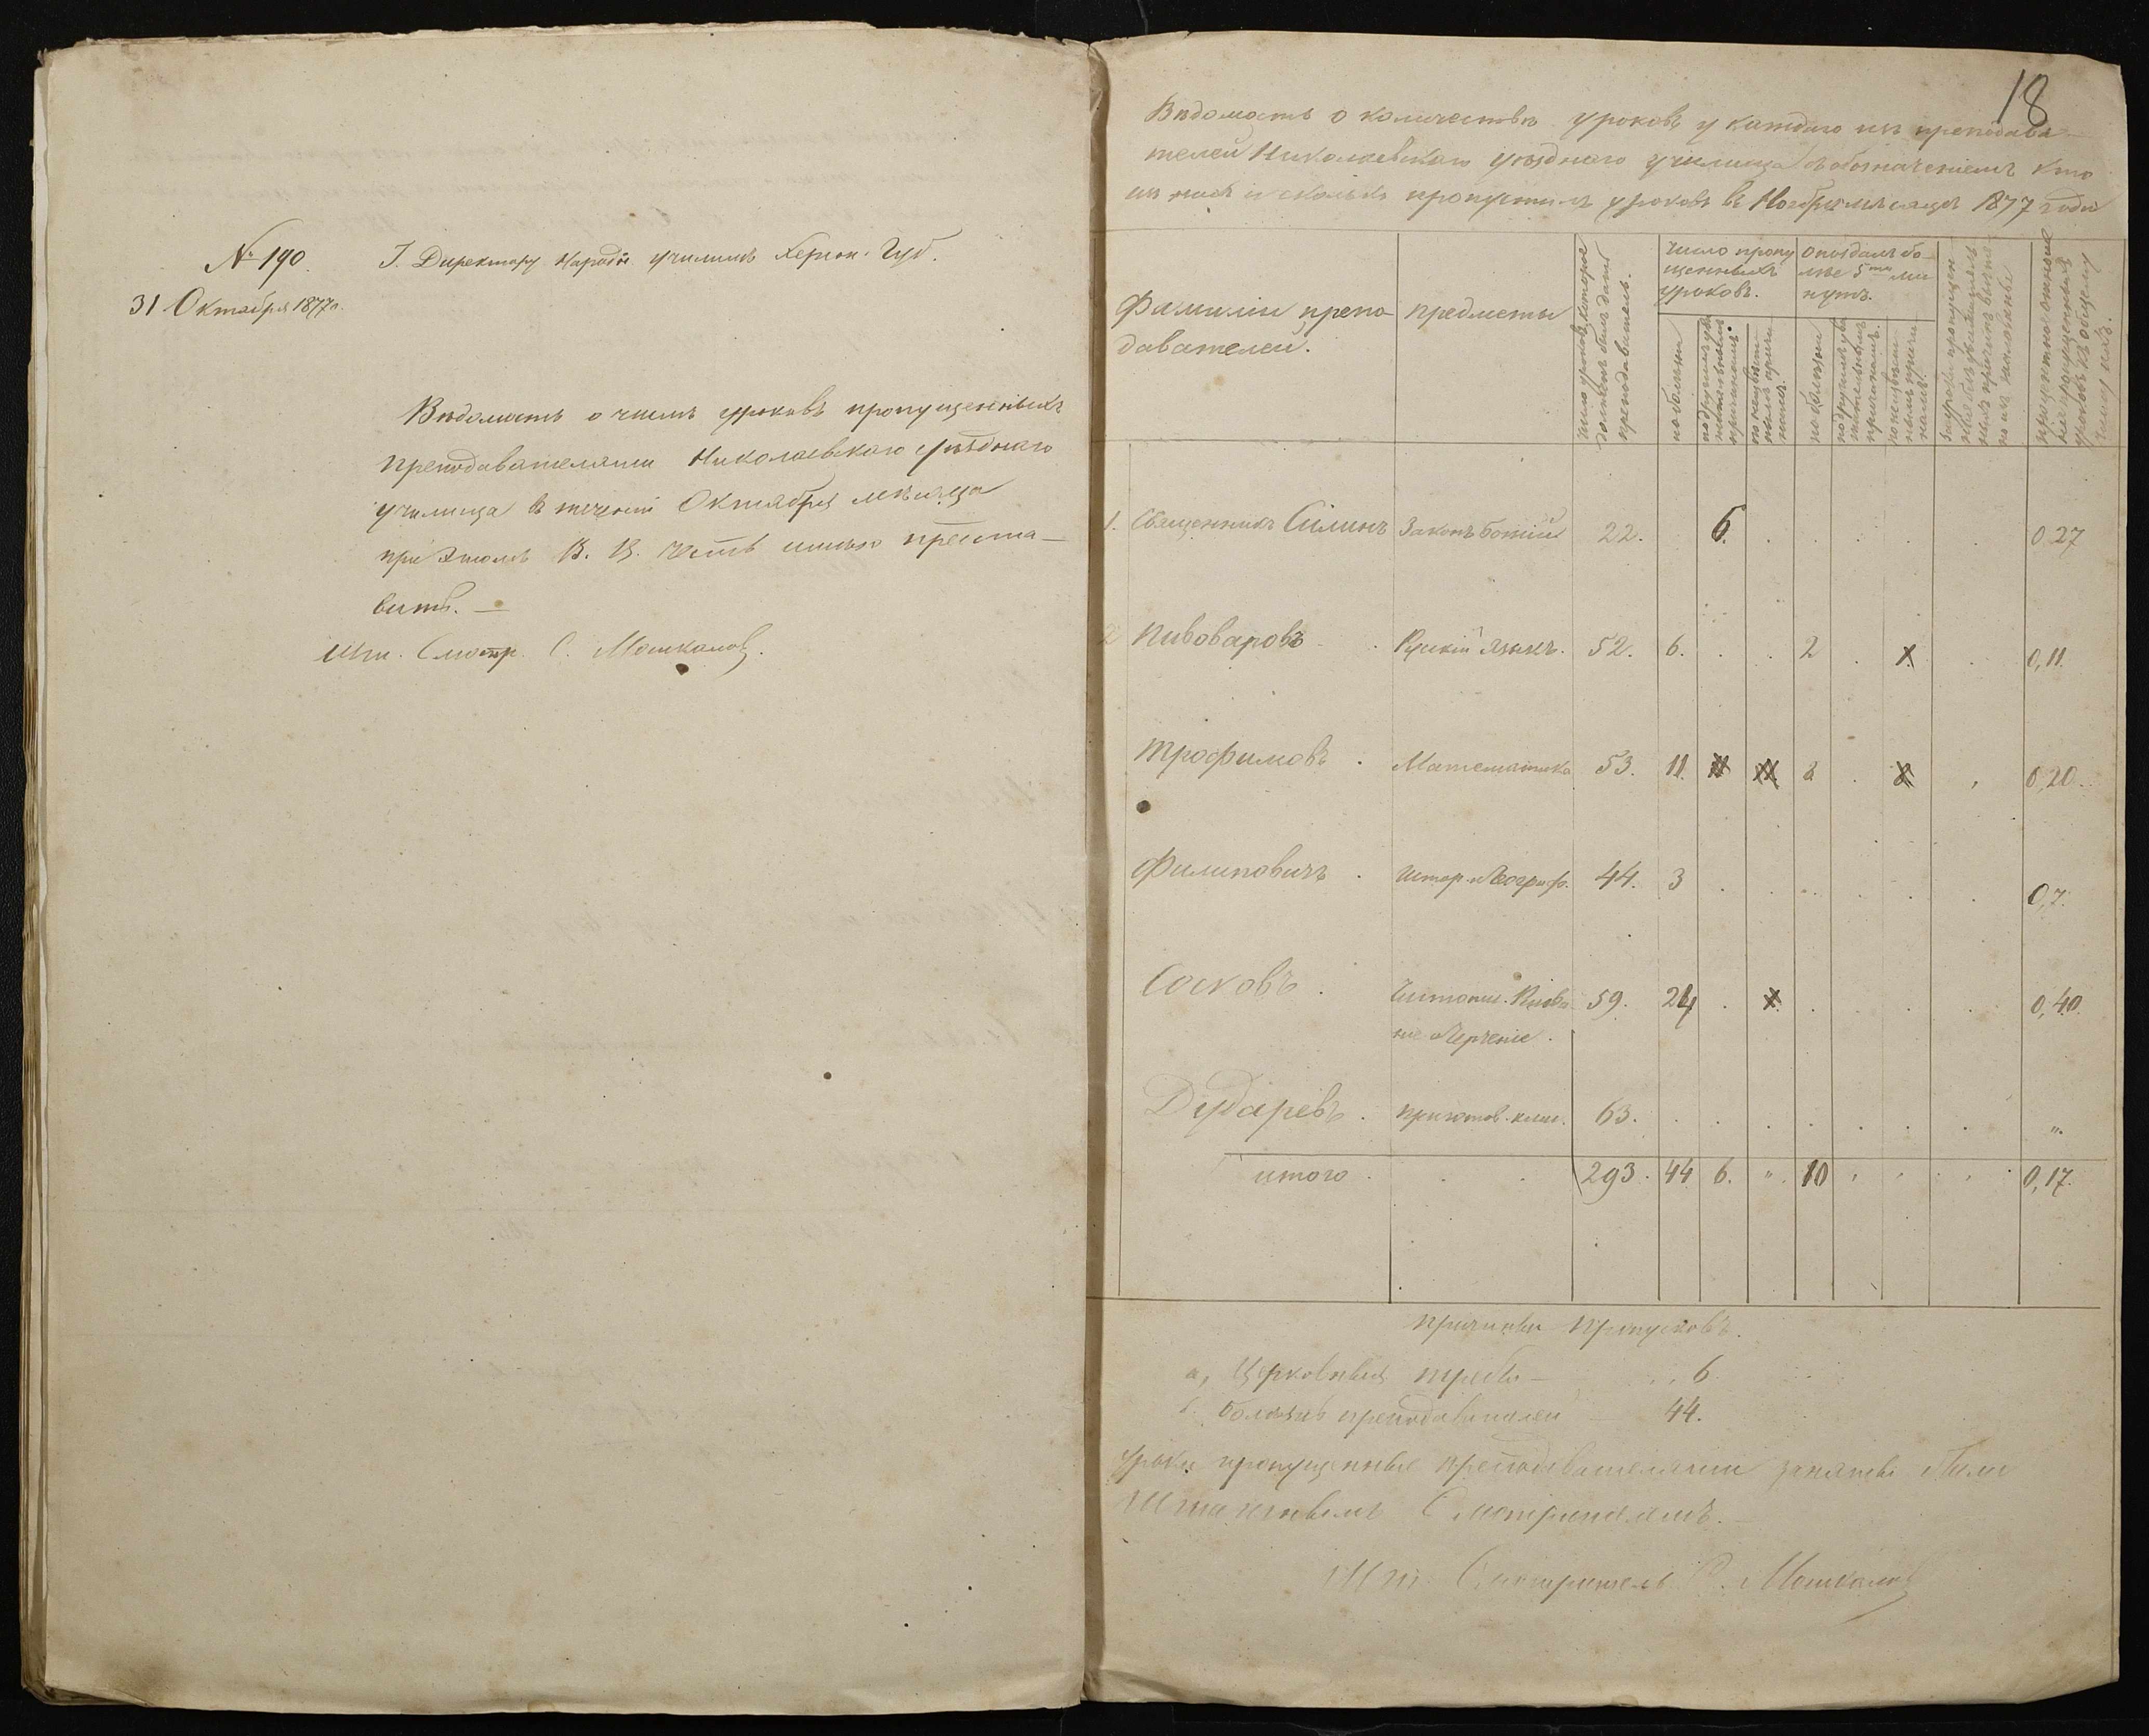 № 190.
31 Октября 1877 г.
Г. Директору Народн. училищъ Херсон. Губ.
Вѣдомость о числѣ уроковъ пропущенныхъ
преподавателями Николаевскаго уѣзднаго
училища въ теченіи Октября мѣсяца
при этомъ В. В. честь имѣю предста-
вить. —
Шт. Смотр. С. Мошкалов.
18
Вѣдомость о количествѣ уроковъ у каждаго изъ преподава-
телей Николаевскаго уѣзднаго училища съ обозначеніемъ кто
изъ нихъ и сколько пропустилъ уроковъ въ Ноябрѣ мѣсяцѣ 1877 года
Фамиліи препо-
давателей.
предметы
Число уроковъ, которое
долженъ былъ дать
преподаватель.
Число пропу
щенныхъ
уроковъ.
по болѣзни
по другимъ ува
жительнымъ
причинамъ
по неизвѣст
нымъ причи
намъ.
Опоздалъ бо-
лѣе 5ти ми
нутъ.
по болѣзни
по другимъ ува
жительнымъ
причинамъ.
по неизвѣст
нымъ причи
намъ.
процентное отношеніе
пропущенныхъ
уроковъ къ общему
числу ихъ.
1. Священникъ Силинъ Законъ Божій 22. 6. 0,27
2 Пивоваровъ Русскій языкъ. 52. 6. 2 0,11.
Трофимовъ. Математика 53. 11. 8 0,20.
Филиповичъ. Истор. и Географ. 44. 3 0,7.
Сосковъ. Чистопис. Рисова- 59. 24 0,40.
ніе и Черченіе.
Дударевъ. приготов. клас. 63. „
итого 293. 44 6. „ 10 0,17.
Причины Пропусковъ.
а, Церковныя требы — 6
б. Болѣзнь преподавателей — 44.
Уроки пропущенные преподавателями заняты были
Штатнымъ Смотрителемъ. —
Шт. Смотритель С. Мошкалов